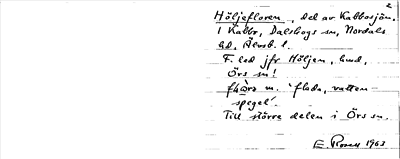 Höljefloren, del av Kabbosjön.
i Kabbo, Dalskogs sn, Nordals
hd, Älvsb. l.
F. led jfr Höljen, hmd,
Örs sn!
flōra m. 'floda, vatten-
spegel'.
Till större delen i Örs sn.
E. Rosell 1963